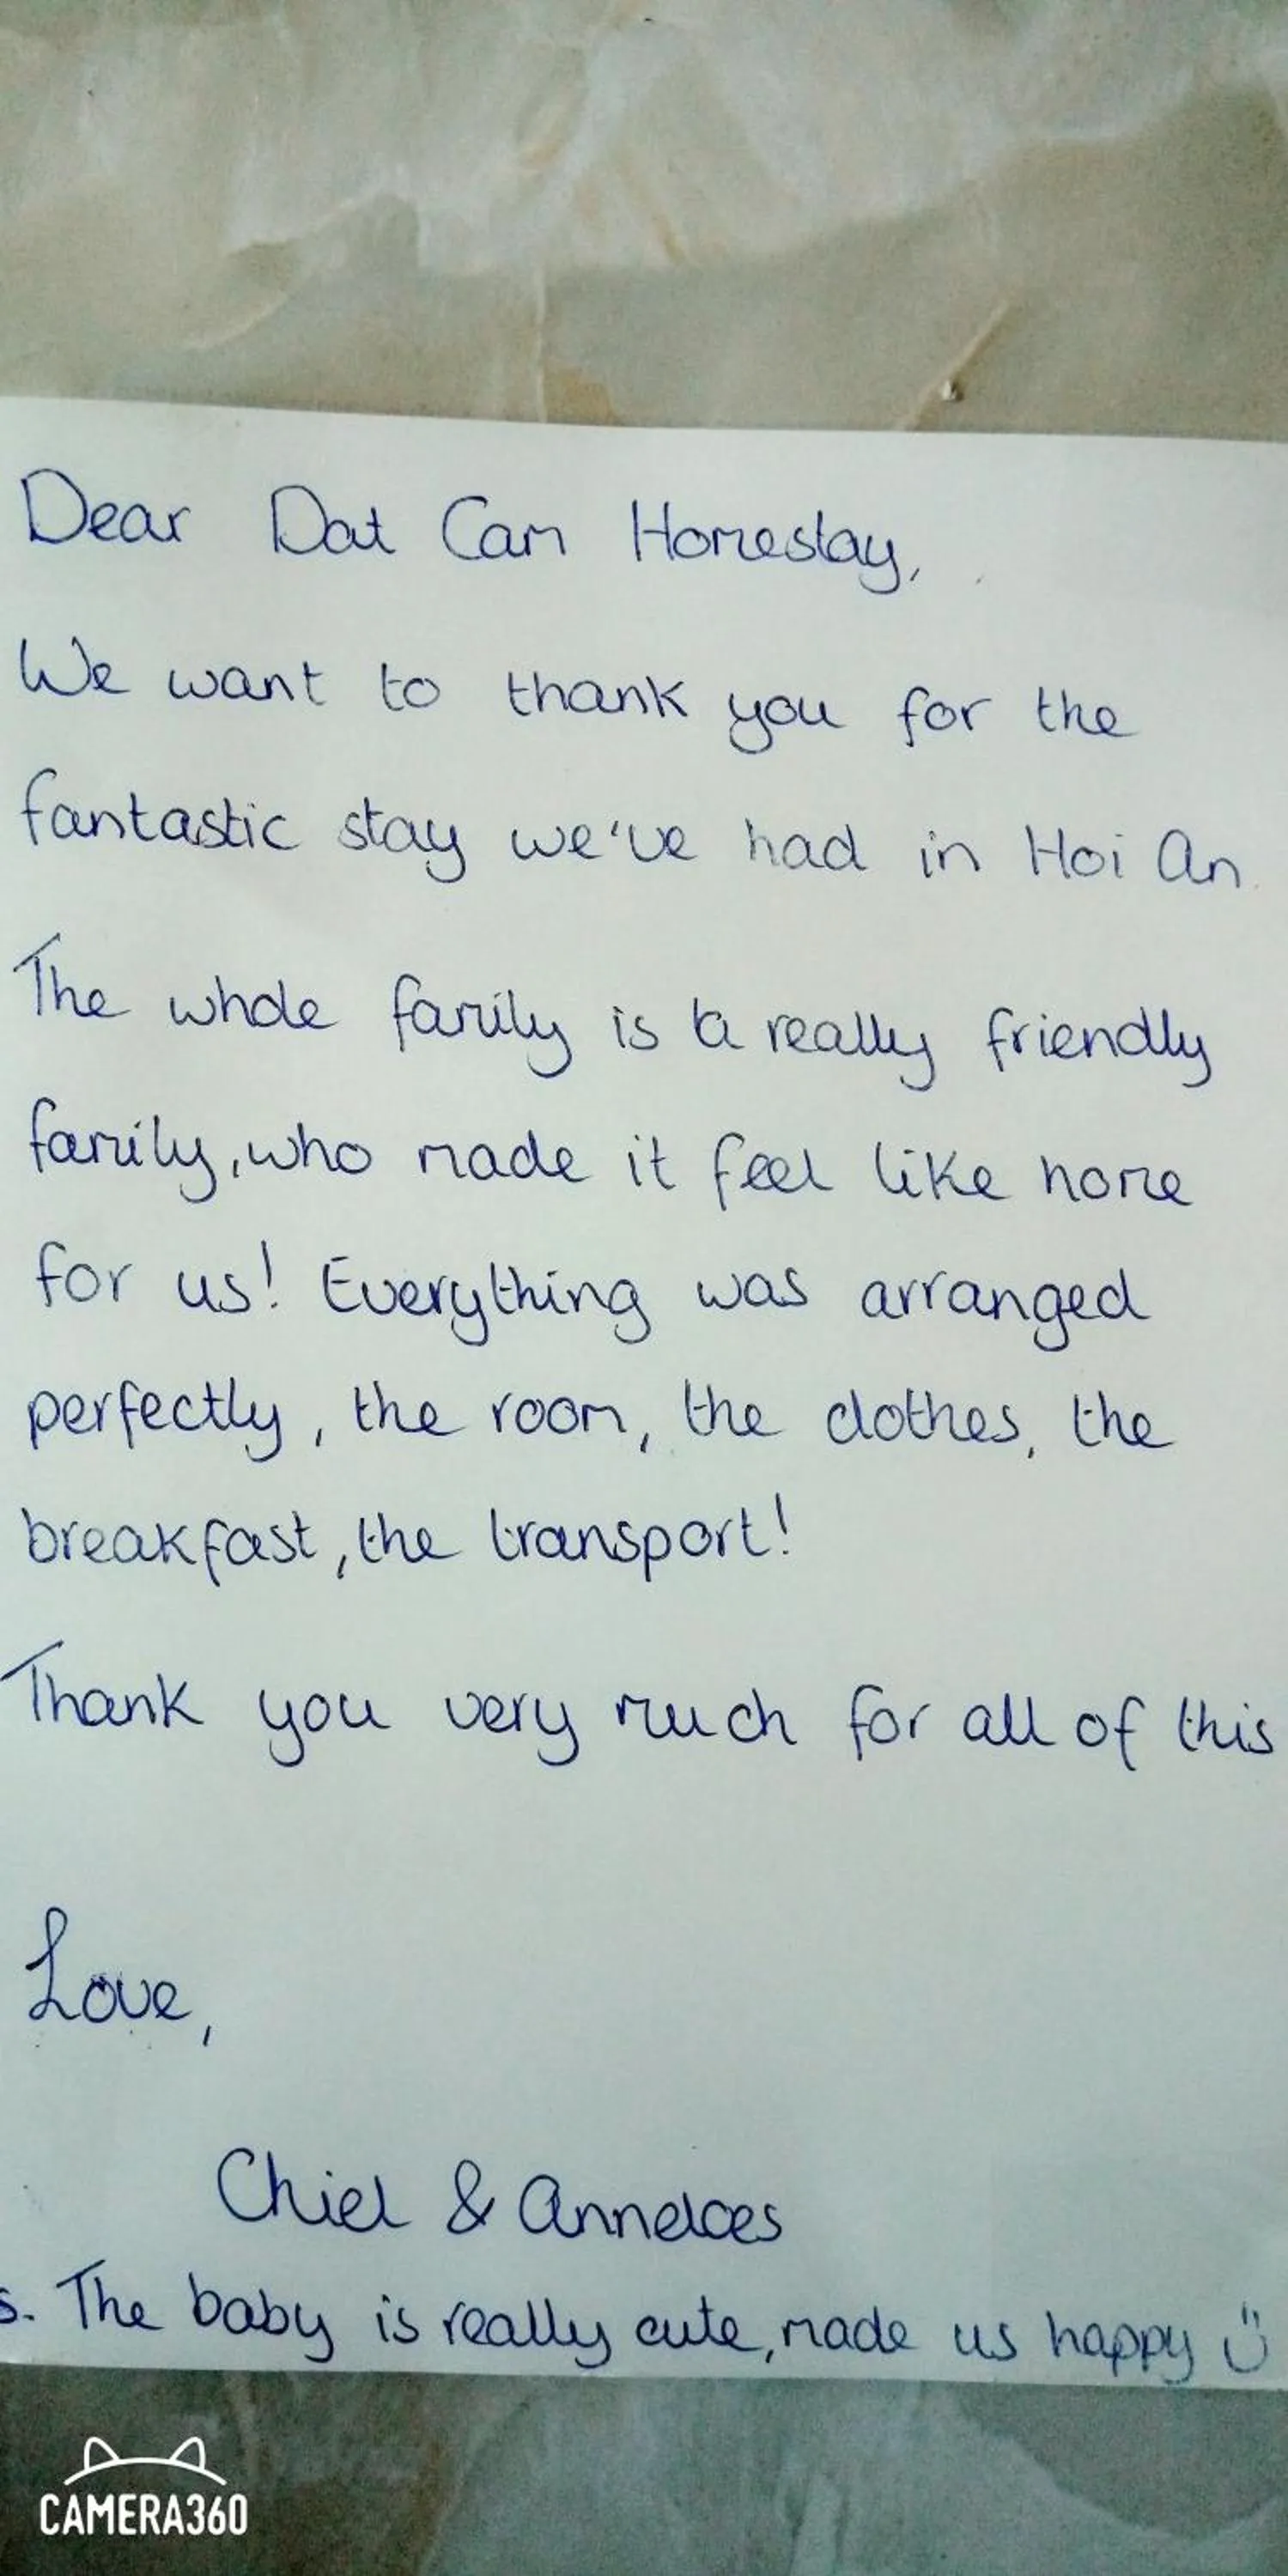 Dear Dat Cam Homestay,
We want to thank you for the
fantastic stay we've had in Hoi An.
The whole family is a really friendly
family, who made it feel like home
for us! Everything was arranged
perfectly, the room, the clothes, the
breakfast, the transport!
Thank you very much for all of this
Love,
Chiel & Anneloes
s. The baby is really cute, made us happy ü
CAMERA360